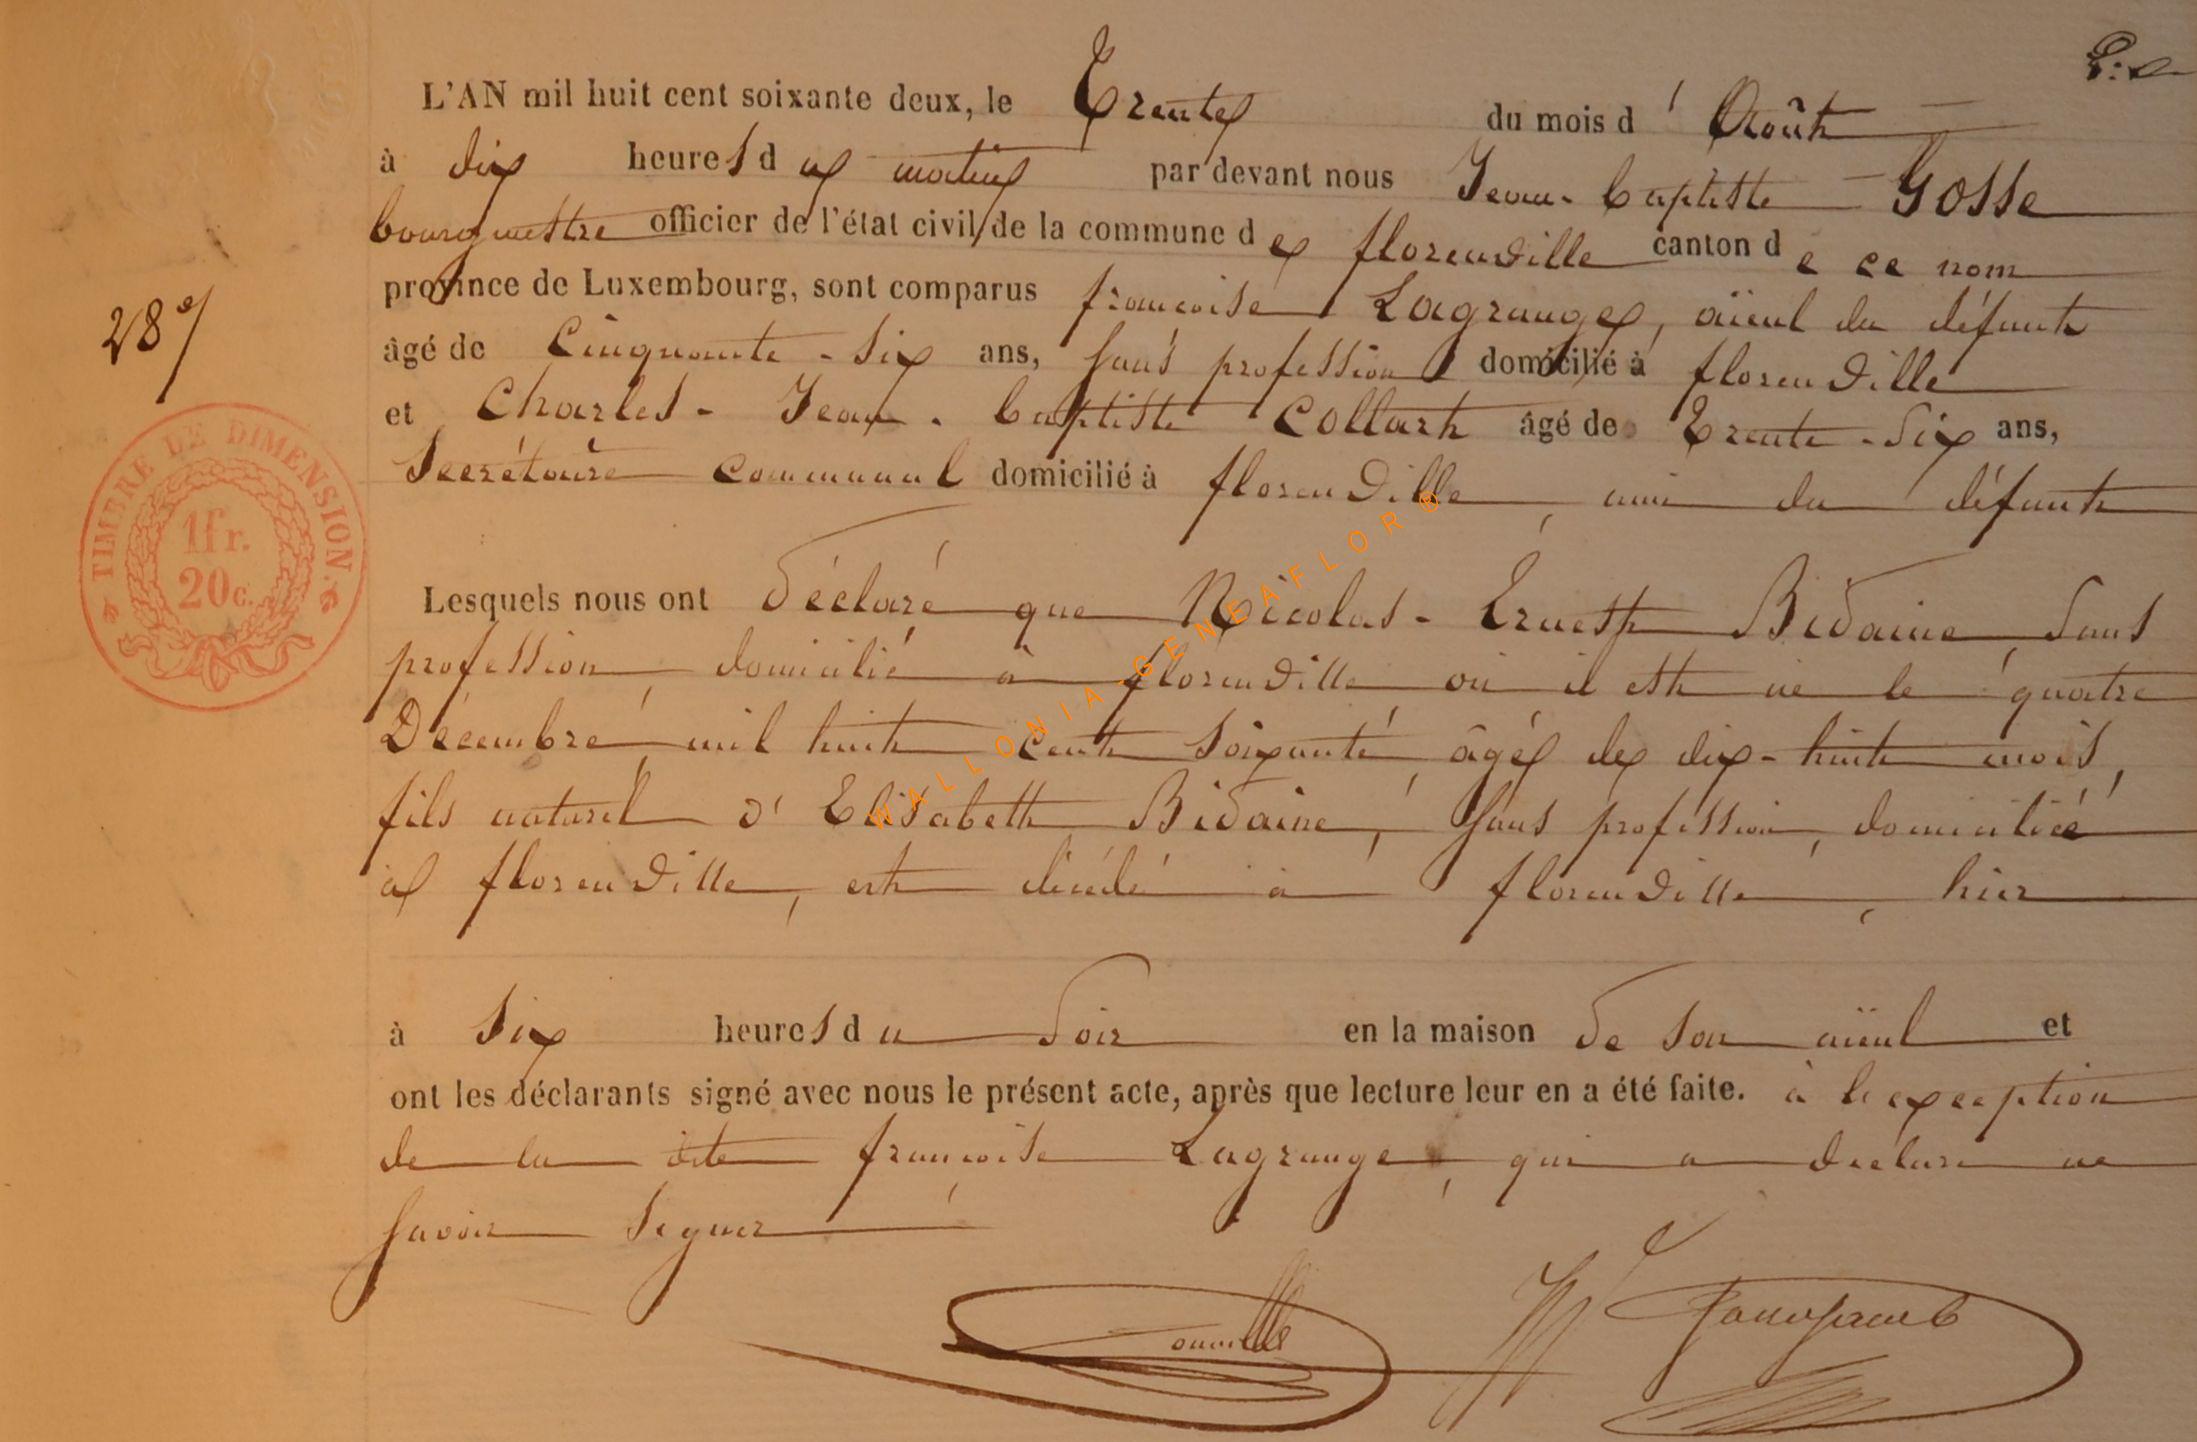 L'AN mil huit cent soixante deux, le Trente du mois d' Août
à dix heures du matin par devant nous Jean-Baptiste Gosse
bourgmestre officier de l'état civil de la commune de florenville canton de ce nom
province de Luxembourg, sont comparus francoise Lagrange, aïeul du défunt
âgé de Cinquante-six ans, sans profession domicilié à florenville
et Charles-Jean-Baptiste Collart âgé de Trente-six ans,
Secrétaire communal domicilié à florenville, ami du défunt
28e/
TIMBRE DE DIMENSION. G
1fr.
20c.
Lesquels nous ont déclaré que Nicolas-Ernest Bidaine, sans
profession, domicilié à florenville où il est né le quatre
Décembre mil huit cent soixante, âgé de dix-huit mois,
fils naturel d'Elisabeth Bidaine, sans profession, domiciliée
à florenville, est décédé à florenville, hier
à six heures du soir en la maison de son aïeul et
ont les déclarants signé avec nous le présent acte, après que lecture leur en a été faite. à l'exception
de la dite francoise Lagrange, qui a déclaré ne
savoir signer
WALLONIA-GENEAFLOR®